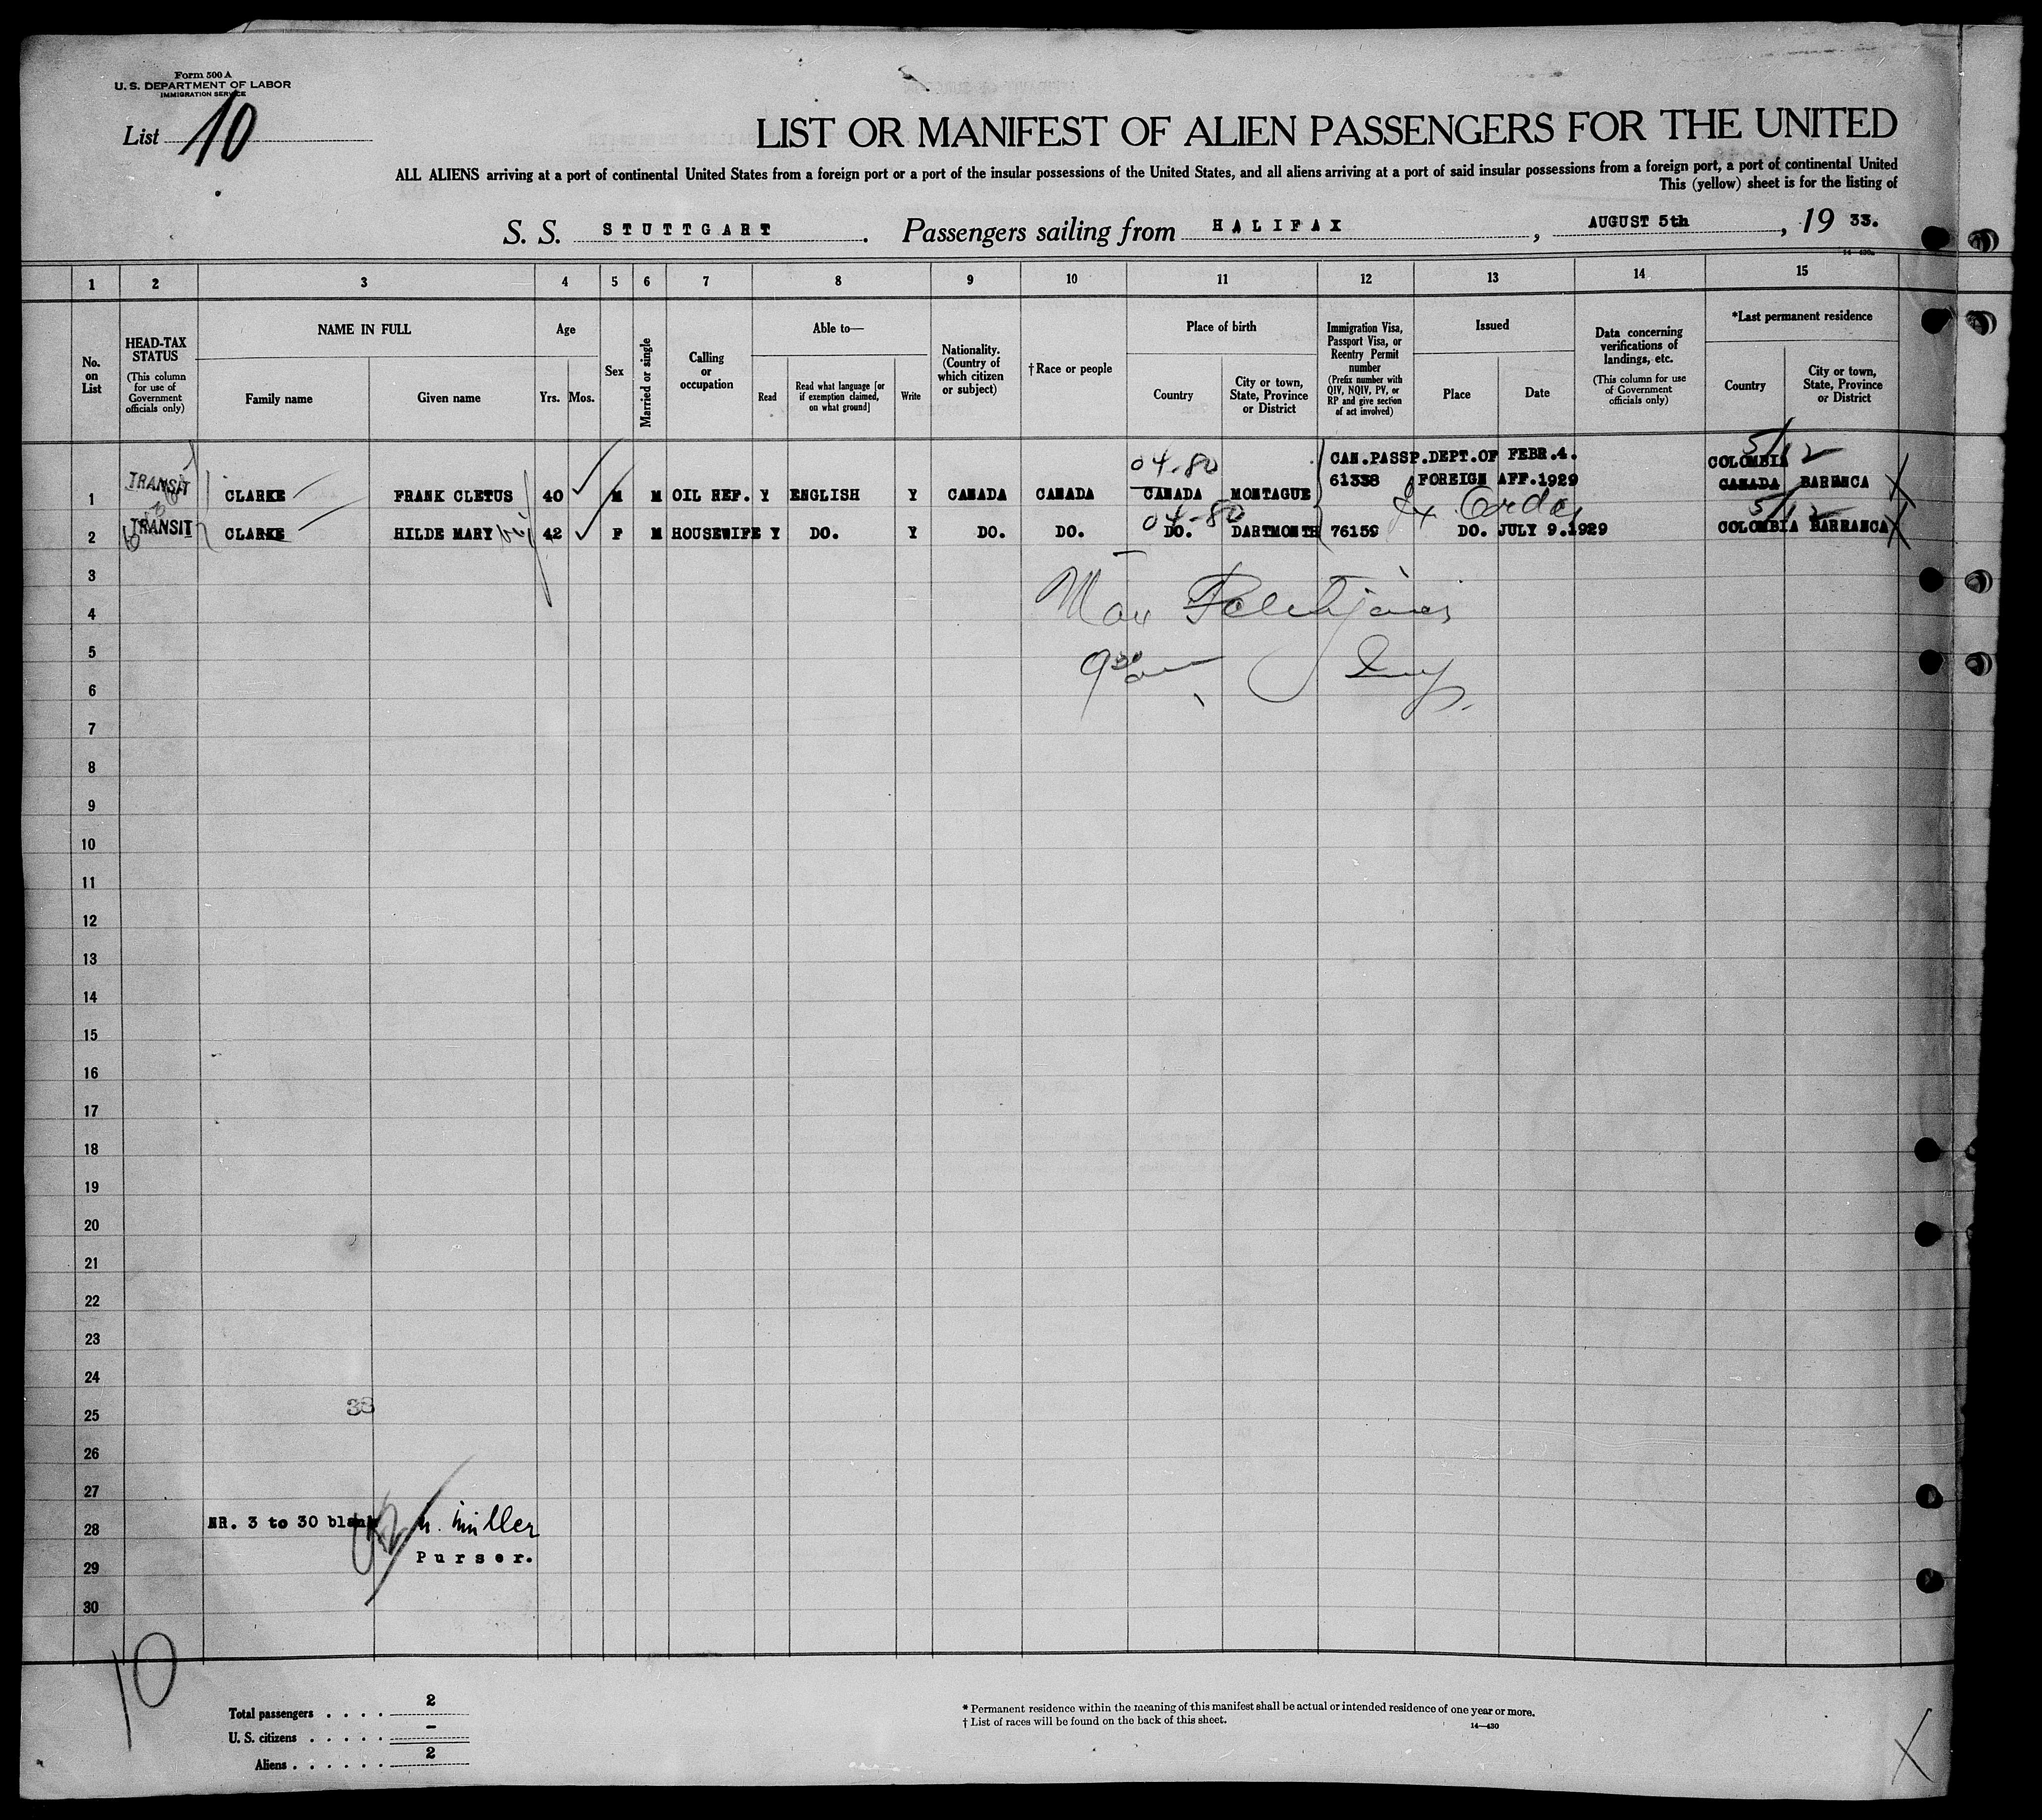 Form 500 A
U. S. DEPARTMENT OF LABOR
IMMIGRATION SERVICE
List 10
LIST OR MANIFEST OF ALIEN PASSENGERS FOR THE UNITED
ALL ALIENS arriving at a port of continental United States from a foreign port or a port of the insular possessions of the United States, and all aliens arriving at a port of said insular possessions from a foreign port, a port of continental United
This (yellow) sheet is for the listing of
S. S. STUTTGART. Passengers sailing from HALIFAX, AUGUST 5th, 19 33.
14—430a
1 2 3 4 5 6 7 8 9 10 11 12 13 14 15
No. on List
HEAD-TAX STATUS
(This column for use of Government officials only)
NAME IN FULL
Family name
Given name
Age
Yrs. Mos.
Sex
Married or single
Calling or occupation
Able to—
Read
Read what language [or if exemption claimed, on what ground]
Write
Nationality. (Country of which citizen or subject)
†Race or people
Place of birth
Country
City or town, State, Province or District
Immigration Visa, Passport Visa, or Reentry Permit number
(Prefix number with QIV, NQIV, PV, or RP and give section of act involved)
Issued
Place
Date
Data concerning verifications of landings, etc.
(This column for use of Government officials only)
*Last permanent residence
Country
City or town, State, Province or District
04-80 CAN.PASSP.DEPT.OF FEBR.4. COLOMBIA 5/12
1 TRANSIT CLARKE FRANK CLETUS 40 M M OIL REF. Y ENGLISH Y CANADA CANADA CANADA MONTAGUE 61338 FOREIGN AFF.1929 CANADA BARANCA X
04-80 5/12
2 TRANSIT CLARKE HILDE MARY 42 F M HOUSEWIFE Y DO. Y DO. DO. DO. DARTMONTH 76159 DO. JULY 9.1929 COLOMBIA BARRANCA X
3
4
5
6
7
8
9
10
11
12
13
14
15
16
17
18
19
20
21
22
23
24
25
26
27
28 NR. 3 to 30 blank
Purser.
29
30
10
Total passengers . . . . 2
U. S. citizens . . . . . –
Aliens . . . . . . 2
* Permanent residence within the meaning of this manifest shall be actual or intended residence of one year or more.
† List of races will be found on the back of this sheet.
14—430
X